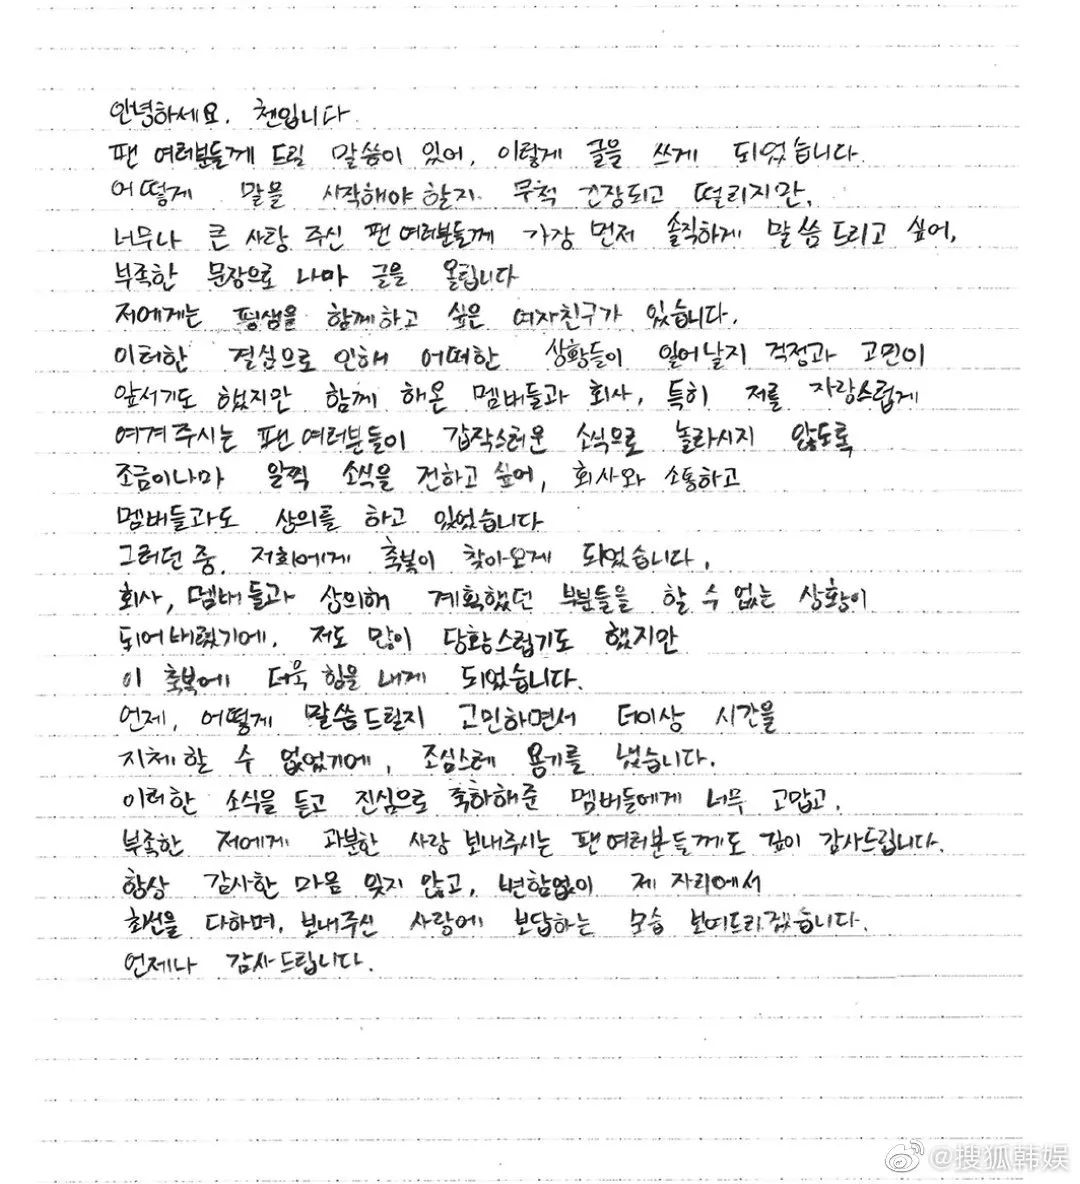 안녕하세요. 첸입니다.
팬 여러분들께 드릴 말씀이 있어, 이렇게 글을 쓰게 되었습니다.
어떻게 말을 시작해야 할지 무척 긴장되고 떨리지만,
너무나 큰 사랑 주신 팬 여러분들께 가장 먼저 솔직하게 말씀드리고 싶어,
부족한 문장으로 나마 글을 올립니다
저에게는 평생을 함께하고 싶은 여자친구가 있습니다.
이러한 결심으로 인해 어떠한 상황들이 일어날지 걱정과 고민이
앞서기도 했지만 함께 해온 멤버들과 회사, 특히 저를 자랑스럽게
여겨주시는 팬 여러분들이 갑작스러운 소식으로 놀라시지 않도록
조금이나마 일찍 소식을 전하고 싶어, 회사와 소통하고
멤버들과도 상의를 하고 있었습니다
그러던 중, 저희에게 축복이 찾아오게 되었습니다.
회사, 멤버들과 상의해 계획했던 부분들을 할 수 없는 상황이
되어버렸기에, 저도 많이 당황스럽기도 했지만
이 축복에 더욱 힘을 내게 되었습니다.
언제, 어떻게 말씀드릴지 고민하면서 더이상 시간을
지체할 수 없었기에, 조심스레 용기를 냈습니다.
이러한 소식을 듣고 진심으로 축하해준 멤버들에게 너무 고맙고,
부족한 저에게 과분한 사랑 보내주시는 팬여러분들께도 깊이 감사드립니다.
항상 감사한 마음 잊지 않고, 변함없이 제 자리에서
최선을 다하며, 보내주신 사랑에 보답하는 모습 보여드리겠습니다.
언제나 감사드립니다.
@搜狐韩娱